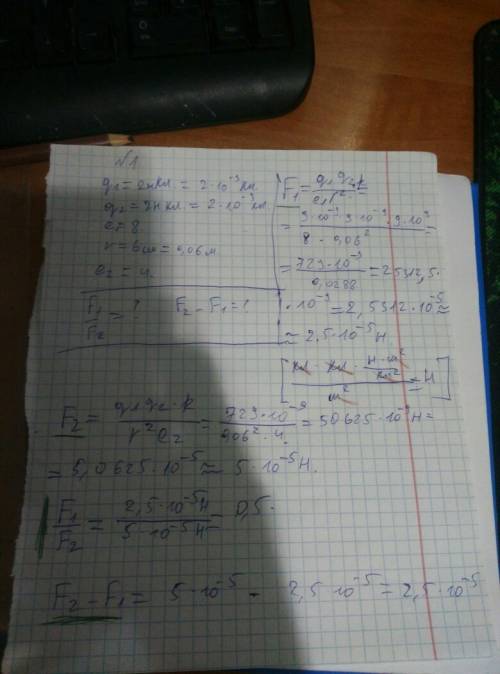 №1
q1 = 2нкл = 2·10⁻⁹ кл
q2 = 9нкл = 2·10⁻⁹ кл
e1 = 8
r = 6см = 0,06м
e2 = 4.
F1/F2 = ? F2 - F1 = ?
F1 = q1 q2·k / e1 r² =
= 9·10⁻⁹·9·10⁻⁹·9·10⁹ / 8·0,06² =
= 729·10⁻⁹ / 0,0288 = 25312,5·
·10⁻⁹ = 2,5312·10⁻⁵ ≈
≈ 2,5·10⁻⁵ Н
[кл·кл·Н·м²/кл² / м² = Н]
F2 = q1 q2·k / r² e2 = 729·10⁻⁹ / 0,06²·4 = 50625·10⁻⁹ Н =
= 5,0625·10⁻⁵ ≈ 5·10⁻⁵ Н.
F1/F2 = 2,5·10⁻⁵ Н / 5·10⁻⁵ Н = 0,5.
F2 - F1 = 5·10⁻⁵ - 2,5·10⁻⁵ = 2,5·10⁻⁵